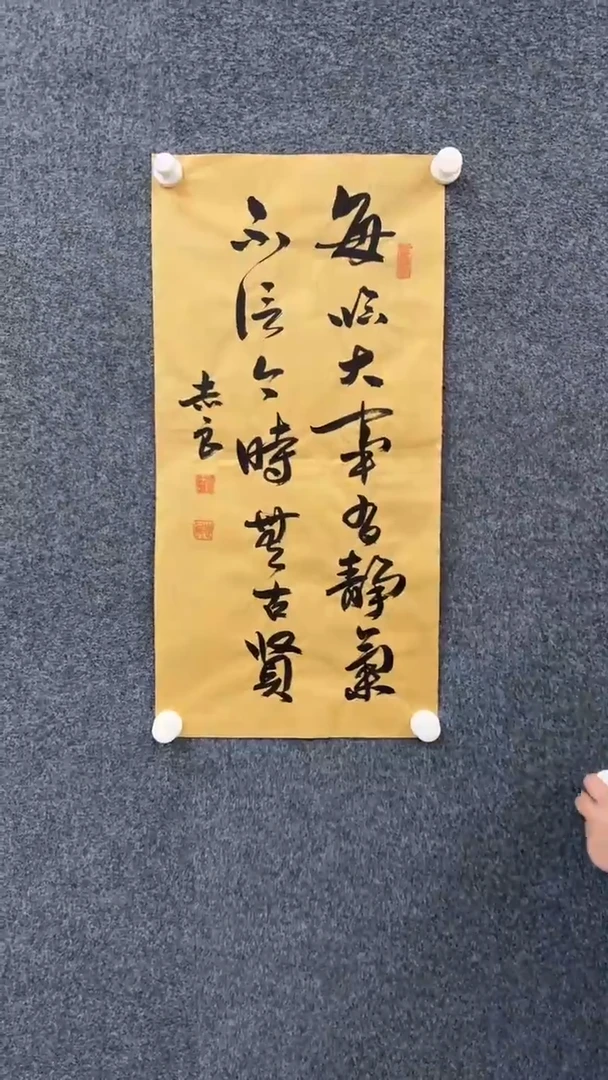 每临大事有静气
不信今時無古贤
志良